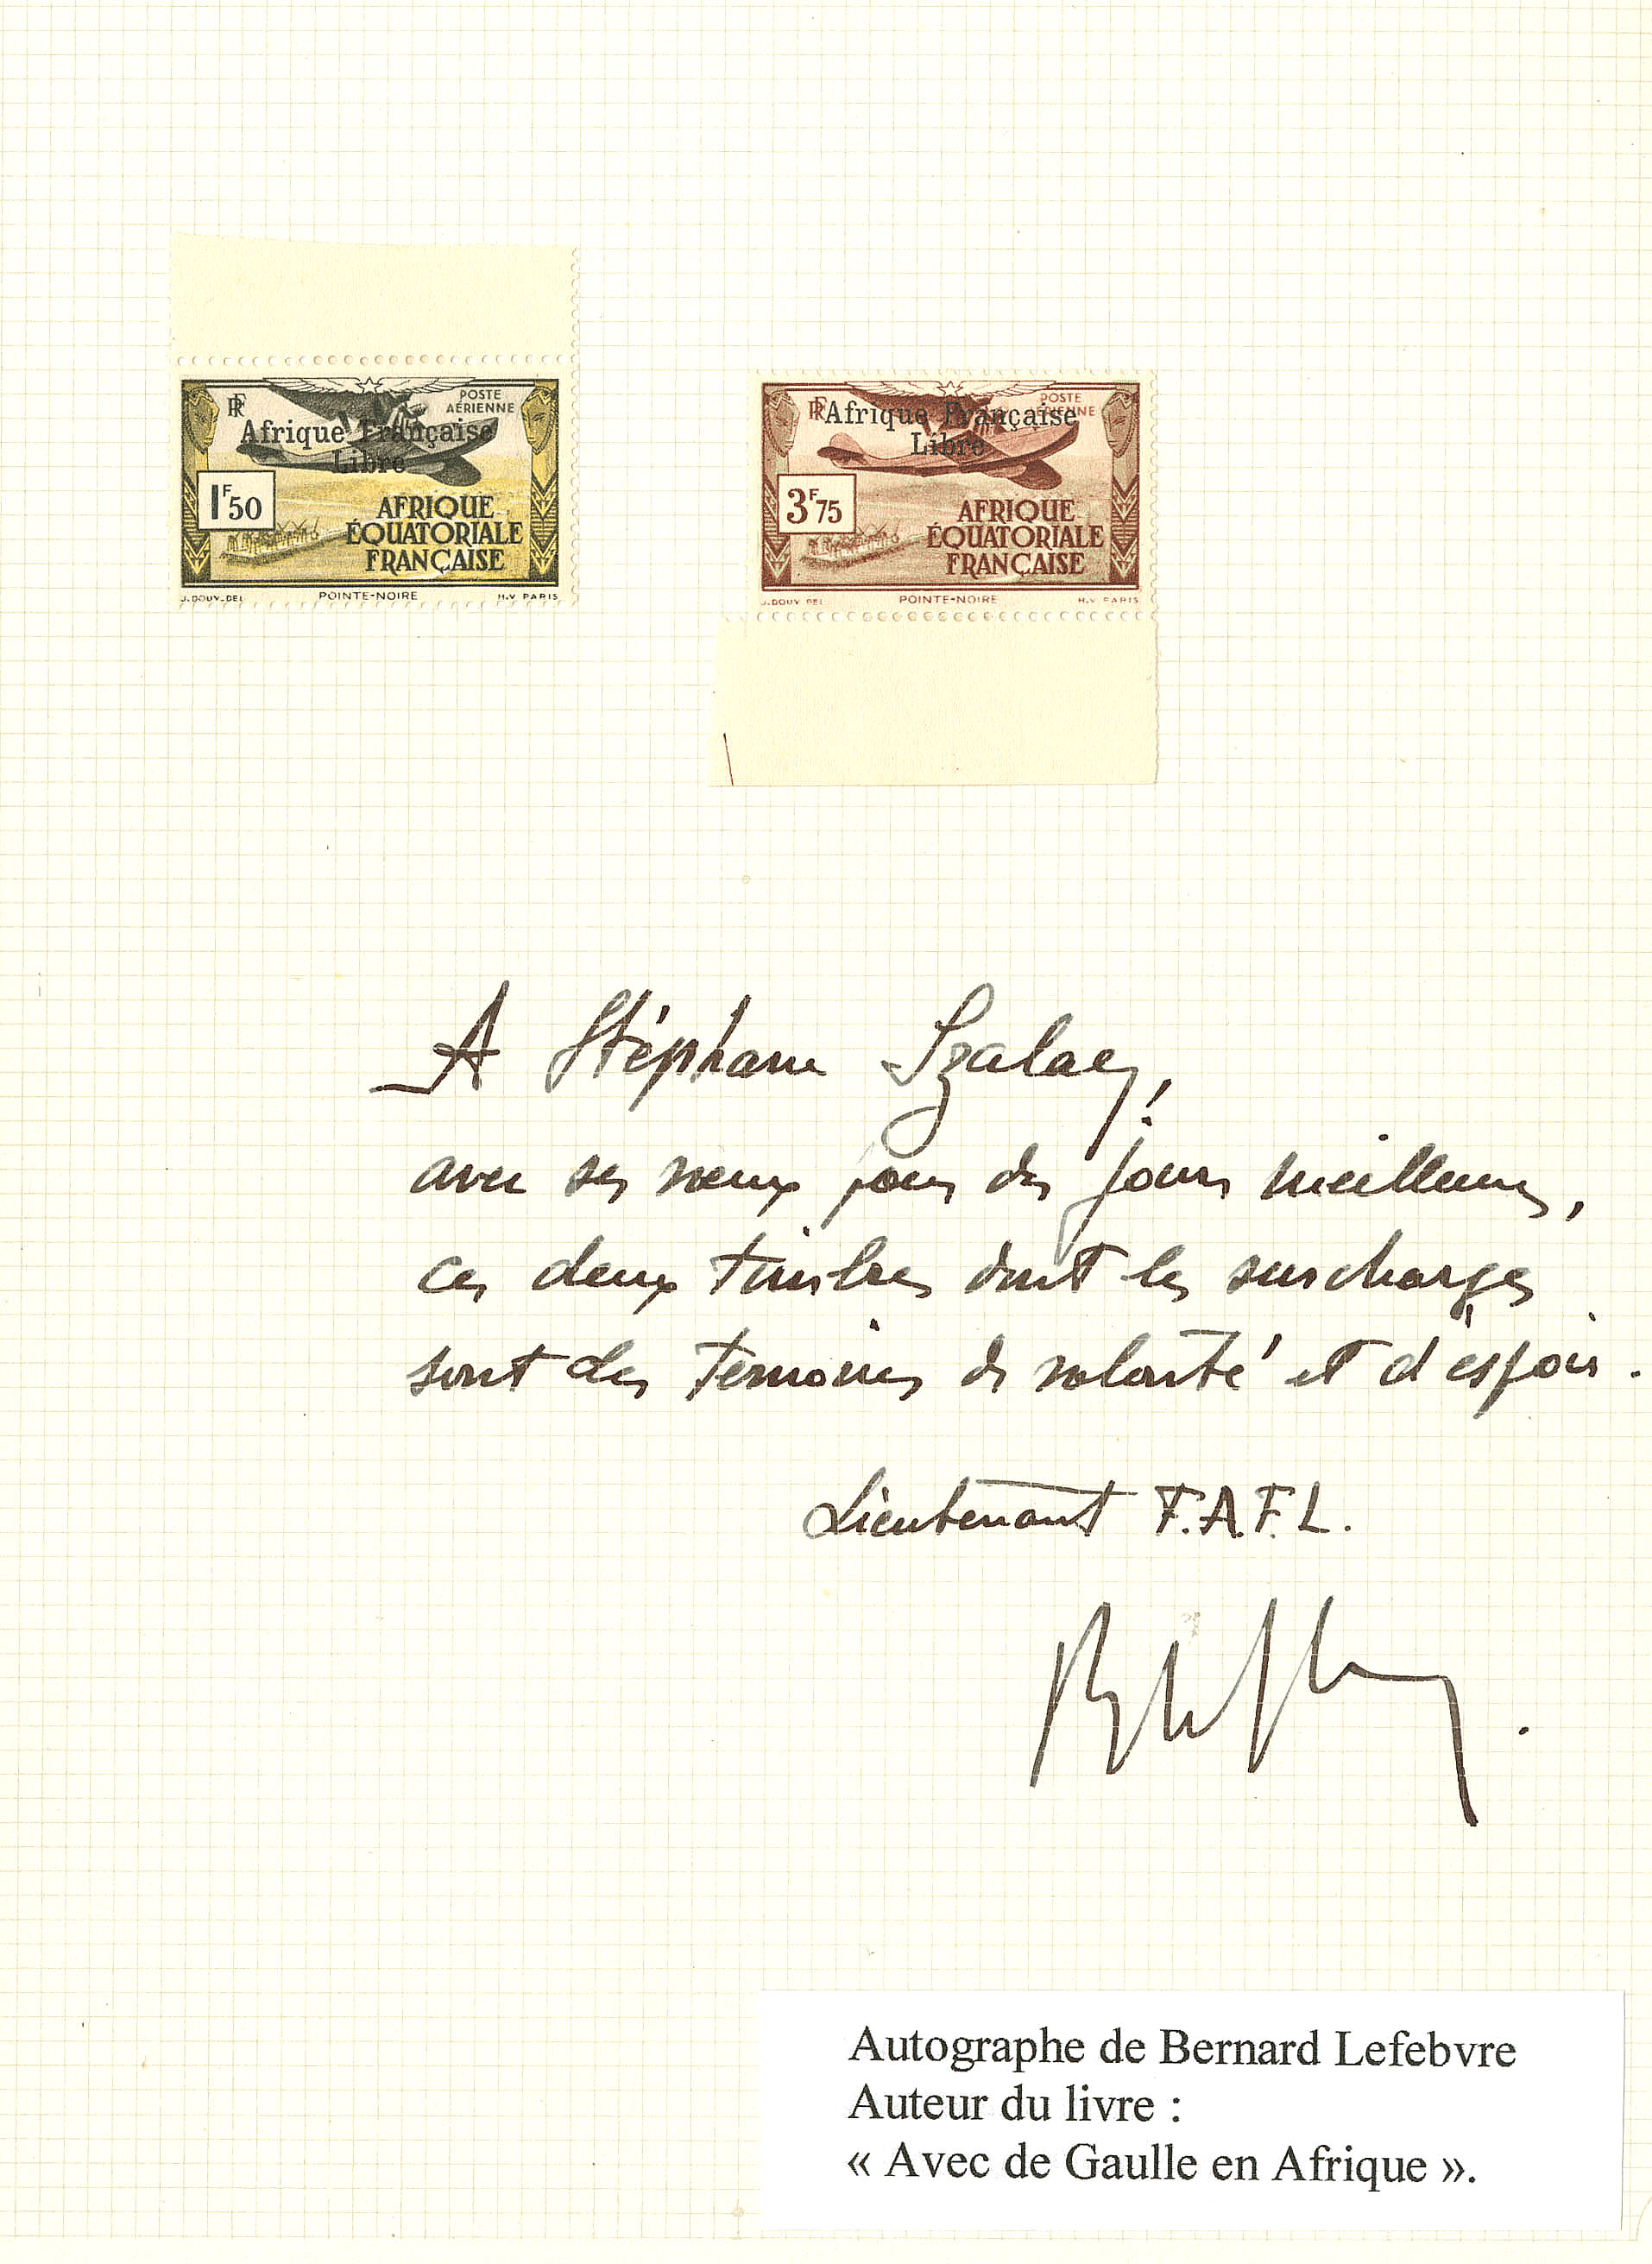 RF
POSTE
AÉRIENNE
Afrique Française
Libre
1F50
AFRIQUE
ÉQUATORIALE
FRANÇAISE
J.DOUY.DEL POINTE-NOIRE H.V PARIS
RF
POSTE
AÉRIENNE
Afrique Française
Libre
3F75
AFRIQUE
ÉQUATORIALE
FRANÇAISE
J.DOUY DEL POINTE-NOIRE H.V. PARIS
A Stéphane Szalay,
avec ses vœux pour des jours meilleurs,
ces deux timbres dont les surcharges
sont des témoins de volonté et d'espoir.
Lieutenant F.A.F.L.
Autographe de Bernard Lefebvre
Auteur du livre :
« Avec de Gaulle en Afrique ».